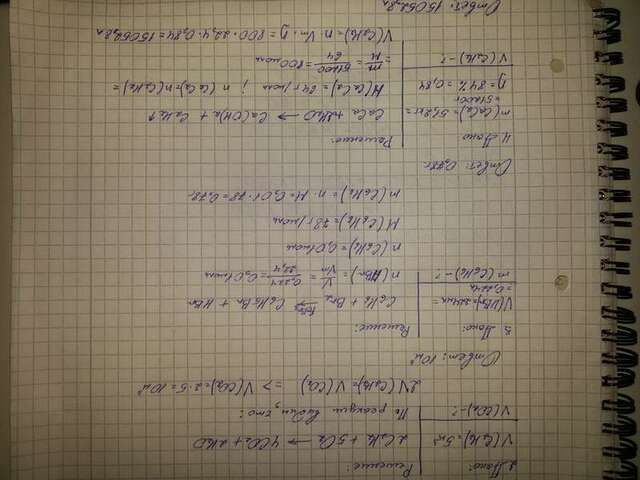 2 Дано:
V(C2H2)=5м³
V(CO2)-?
Решение:
2C2H2 + 5O2 → 4CO2 + 2H2O
По реакции видим, что:
2V(C2H2)=V(CO2) => V(CO2)=2·5=10м³
Ответ: 10м³
3. Дано:
V(HBr)=224мл=
=0,224л
m(C6H6)-?
Решение:
C6H6 + Br2 → C6H5Br + HBr
n(HBr)= V/Vm = 0,224/22,4 = 0,01моль
n(C6H6)=0,01моль
M(C6H6)=78г/моль
m(C6H6)=n·M=0,01·78=0,78г
Ответ: 0,78г
4. Дано:
m(CaC2)=51,2кг=
=51200г
η=84%=0,84
V(C2H2)-?
Решение:
CaC2 + 2H2O → Ca(OH)2 + C2H2↑
M(CaC2)=64г/моль; n(CaC2)=n(C2H2)=
= m/M = 51200/64 = 800моль
V(C2H2)=n·Vm·η=800·22,4·0,84=15052,8л
Ответ: 15052,8л